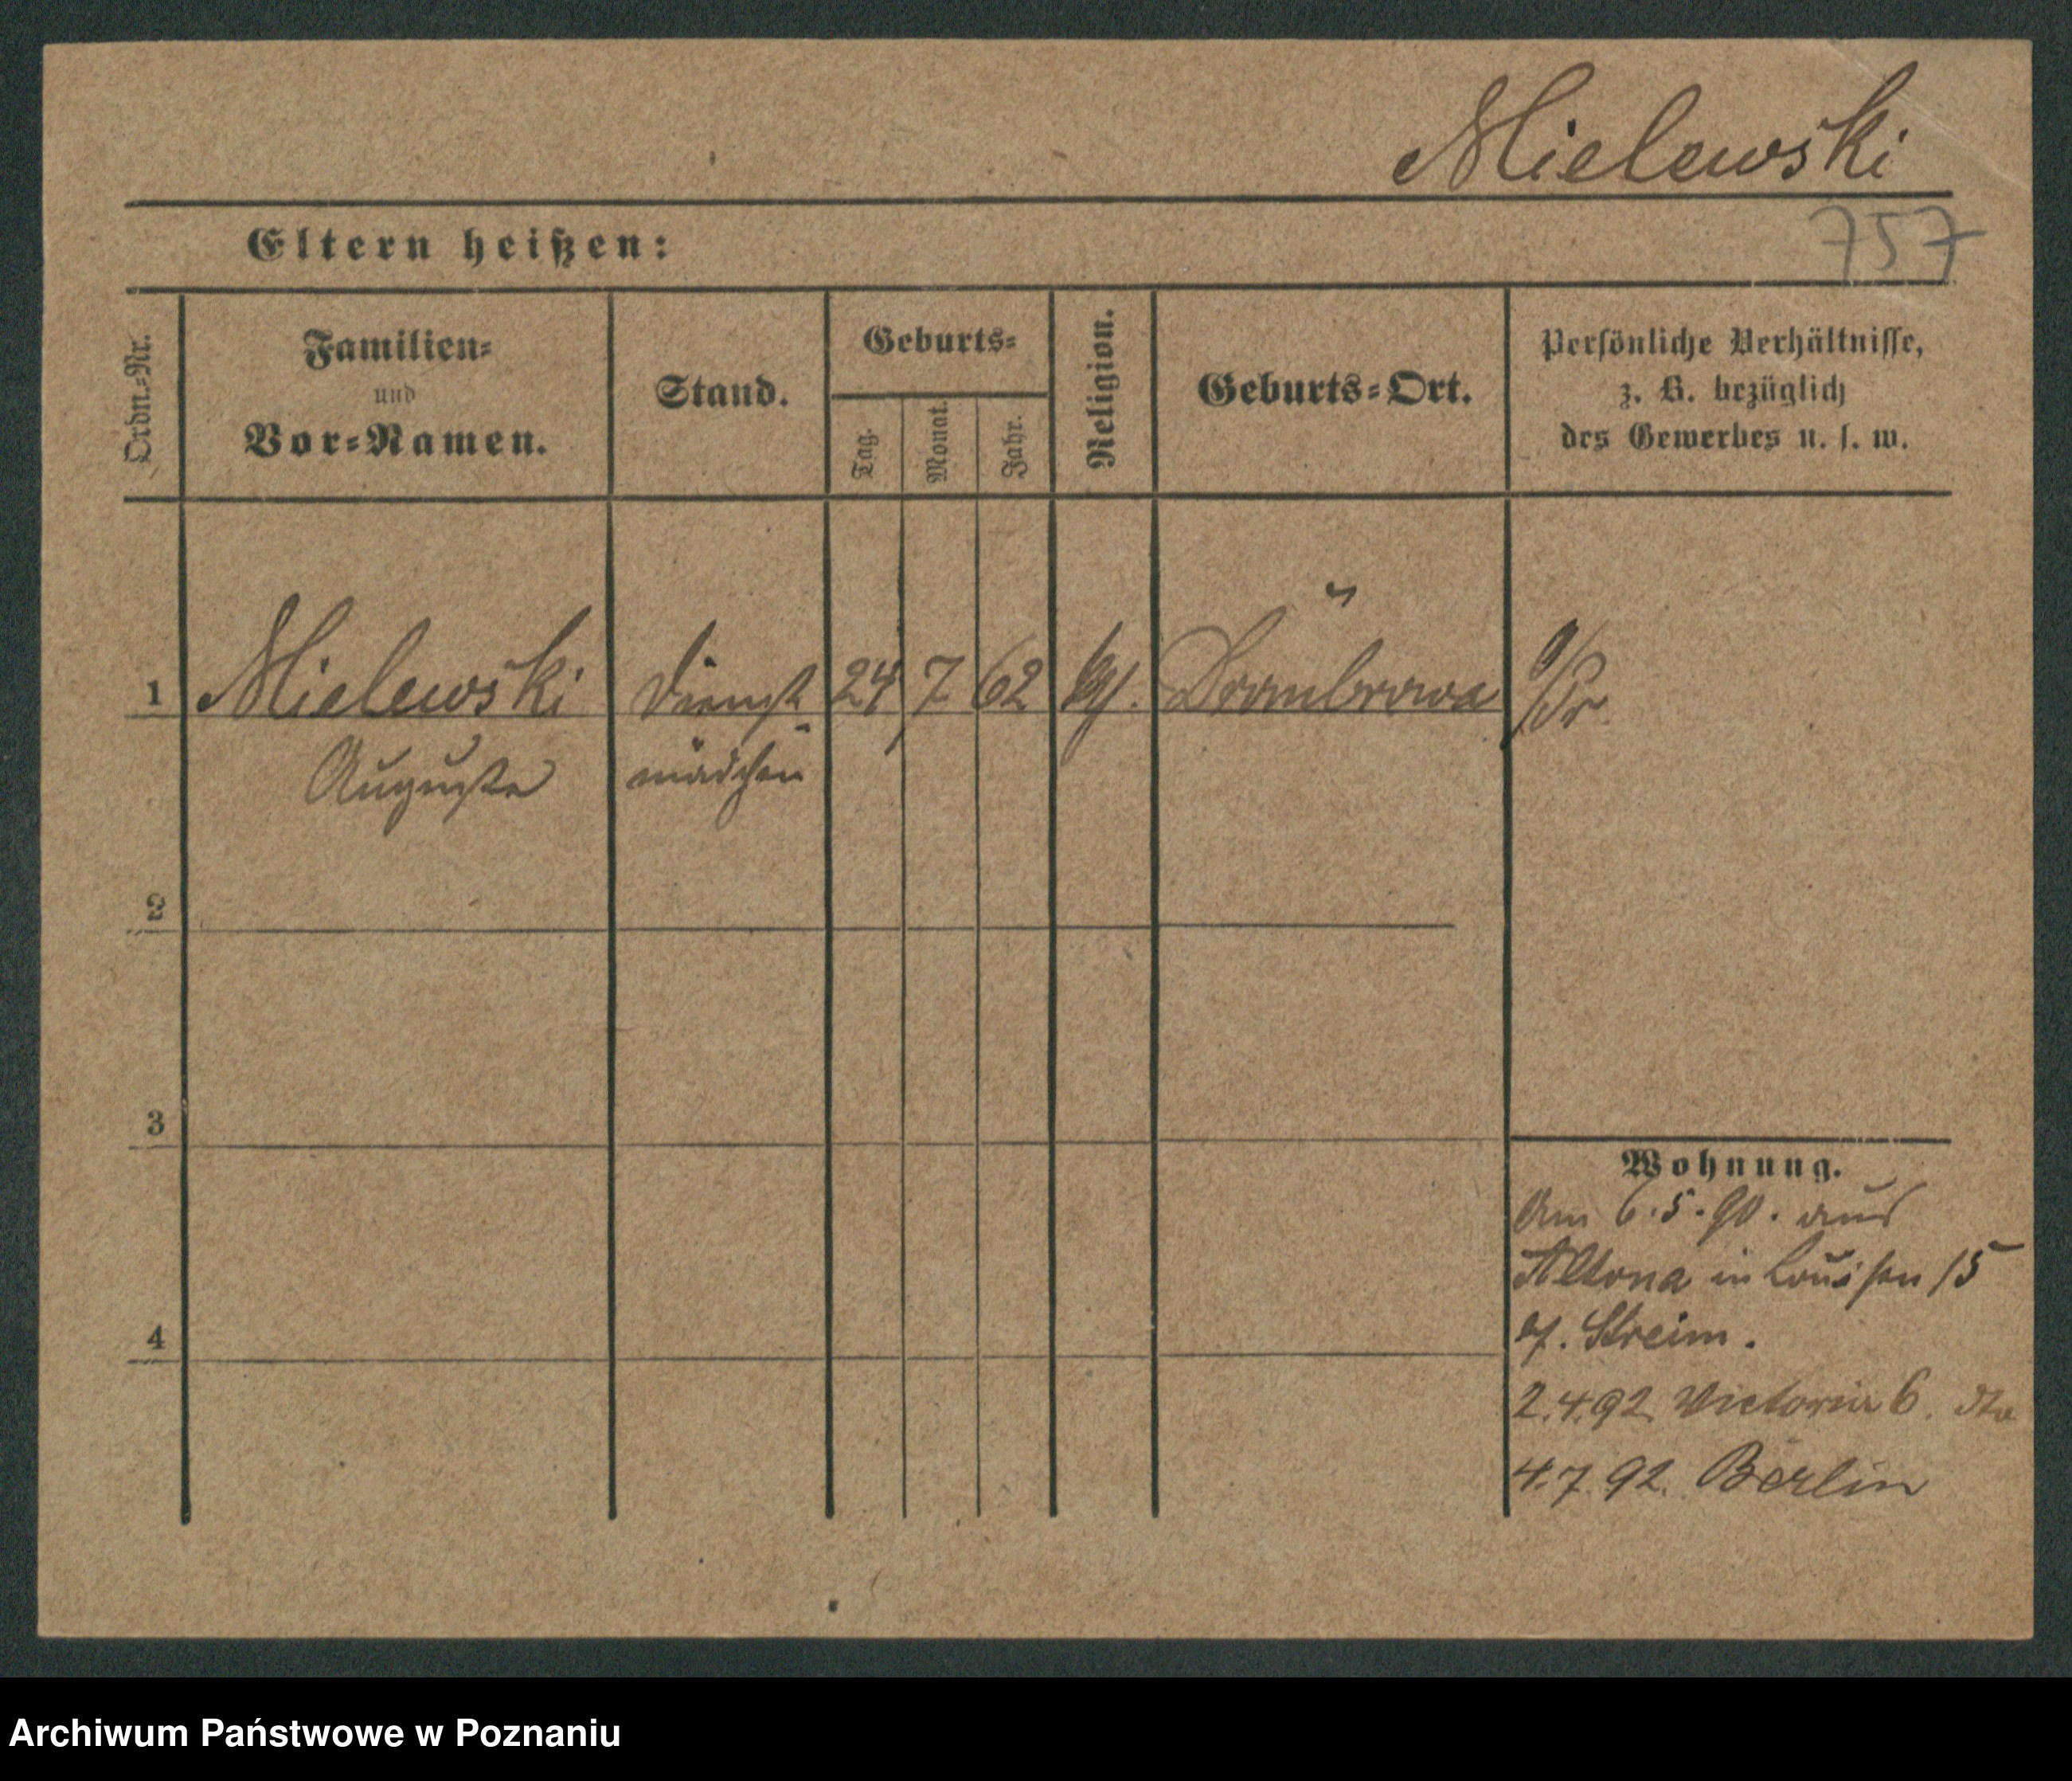 Mielewski
757
Eltern heißen:
Ordn.-Nr.
Familien-
und
Vor-Namen.
Stand.
Geburts-
Tag.
Monat.
Jahr.
Religion.
Geburts-Ort.
Persönliche Verhältnisse,
z. B. bezüglich
des Gewerbes u. s. w.
1 Mielewski Dienst 24 7 62 Dombrowa
Auguste mädchen
2
3
4
Wohnung.
Am 6.5.90. aus
Altona in Louisen 15
Streim.
2.4.92. Victoria 6.
4.7.92. Berlin
Archiwum Państwowe w Poznaniu